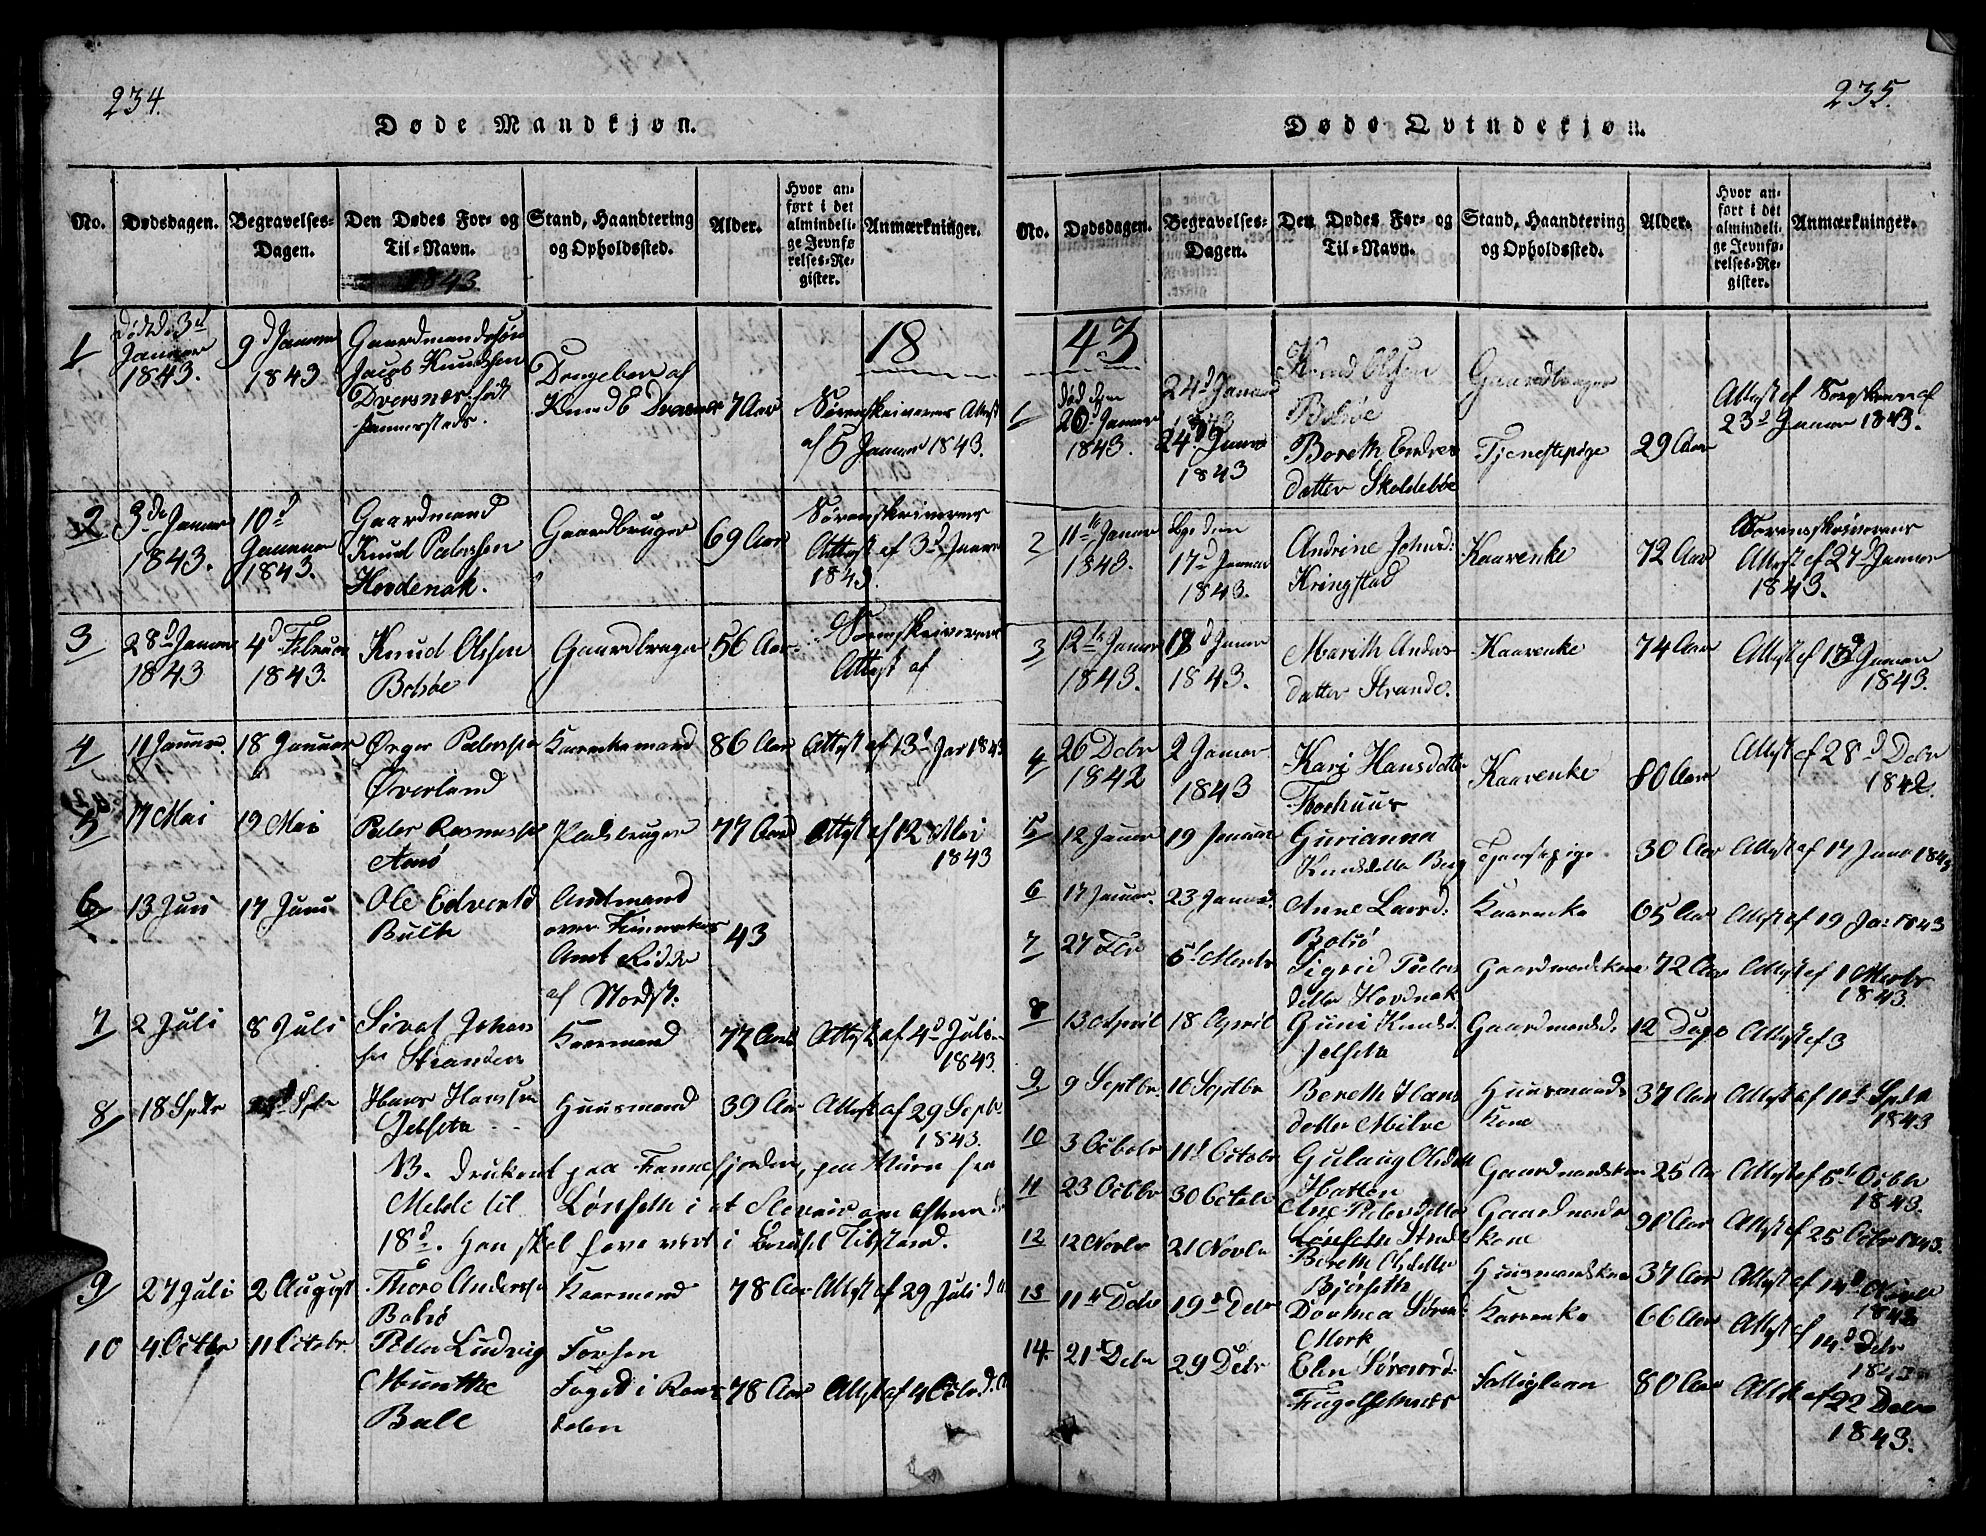 234.
Døde Mandkjøn.
No.
Dødsdagen.
Begravelses-
Dagen.
Den Dødes For- og
Til-Navn.
1843
Stand, Haandtering
og Opholdssted.
Alder.
Hvor an-
ført i det
almindeli-
ge Jevnfø
relses-Re-
gister.
Anmærkninger.
18
1
Død d. 3d
Januar
1843.
9d Januar
1843
Gaardmandssøn
Jacob Knudsen
født
Drengebarn af
Knud E
7 Aar
Sørenskriverens Attest
af 5 Januar 1843.
2
3de Januar
1843.
10d
Januar
1843.
Gaardmand
Knud Pedersen
Hovdenak.
Gaardbruger
69 Aar
Sørenskriverens
Attest af 3d Januar
1843.
3
28d Januar
1843
4d Februar
1843.
Knud Olsen
Bolsøe
Gaardbruger
56 Aar
Sørenskriverens
Attest af
4
11 Januar
18 Januar
Pedersen
Øverland
Kaarmand
86 Aar
Attest af 13d Jan 1843
5
17 Mai
19 Mai
Peder Rasmussen
Aarø
Pladsbruger
77 Aar
Attest af 12 Mai
1843
6
13 Juni
17 Juni
Ole Edvard
Buck
Amtmand
over Finmarkens
Amt Ridder
af Nordst.
43
7
2 Juli
8 Juli
Sivat Johan
sen Stranden
Kaarmand
77 Aar
Attest af 4d Juli
1843.
8
18 Septr
Septr
Hans Hansen
Jelseta
Huusmand
39 Aar
Attest af 29 Septr
1843.
NB. Druknet paa Fannefjorden, paa Turen fra
Melde til Lønseth i et om Aftenen d
18d. Han skal have vært i Beruset Tilstand.
9
27 Juli
2 August
Thore Andersen
Bolsø
Kaarmand
78 Aar
Attest af 29 Juli d. A.
10
4 Octbr
11 Octobr
Peter Ludvig
Munthe
Bull
Forhen
Foged i Roms
dalen
78 Aar
Attest af 4 Octbr d. A.
235.
Døde Qvindekjøn.
No.
Dødsdagen.
Begravelses-
Dagen.
Den Dødes For- og
Til-Navn.
Stand, Haandtering
og Opholdssted.
Alder.
Hvor an-
ført i det
almindeli-
ge Jevnfø-
relses-Re-
gister.
Anmærkninger.
43
1
død den
20 Januar
1843.
24d Januar
1843
24d Januar
1843
Knud Olsen
Bolsøe
Bereth Endres
datter Skoldebøe
Gaardbruger
Tjenestepige
29 Aar
Attest af Sorenskr. af
23d Januar 1843.
2
11te Januar
1843.
17d Januar
1843.
Andrine Johnsd:
Kringstad
Kaarenke
72 Aar
Sorenskriverens
Attest af 27d Januar
1843.
3
12te Januar
1843.
18d Januar
1843.
Mareth Anders
datter Strande.
Kaarenke
74 Aar
Attest af 13d Januar
1843.
4
26 Debr
1842
2 Januar
1843
Kari Hansdatter
Thorhuus
Kaarenke
80 Aar
Attest af 28d Debr
1842.
5
12 Januar
19 Januar
Gurianna
Knudsdatter Berg
Tjenestepige
30 Aar
Attest af 17 Janr 1843
6
17 Januar.
23 Januar.
Anne Larsd:
Bolsø
Kaarenke
65 Aar
Attest af 19 Jan 1843
7
27 Febr
5d Marts
Sigrid Peders
datter Hovdnak
Gaardmandskone
72 Aar
Attest af 1 Marts
1843.
8
13 April
18 April
Guni Knudsd.
Jelseta
Gaardmandsd:
12 Dage
Attest af 3
9
9 Septbr
16 Septbr
Bereth Hans
datter Milve
Huusmands
kone
37 Aar
Attest af 10d Septr
1843
10
3 Octobr
11d Octobr
Gulaug Olsdatt
Hatten
Gaardmandskone
25 Aar
Attest af 5te Octbr
1843.
11
23 Octbr
30 Octobr
Ane Pedersdatter
Lønseth Strande
Gaardmands
kone
90 Aar
Attest af 25 Octbr 1843.
12
12 Novbr
21 Novbr
Bereth Olsdatter
Bjørseth
Huusmandskone
37 Aar
Attest af 14d Novbr
1842
13
11te Debr
19de Debr
Dorthea Sørensd:
Mork
Kaarenke
66 Aar
Attest af 14d Debr
1843
14.
21d Debr
29 Debr
Elen Sivertsd.
Fuglsetnæs
Fattiglem
80 Aar
Attest af 22 Debr
1843.